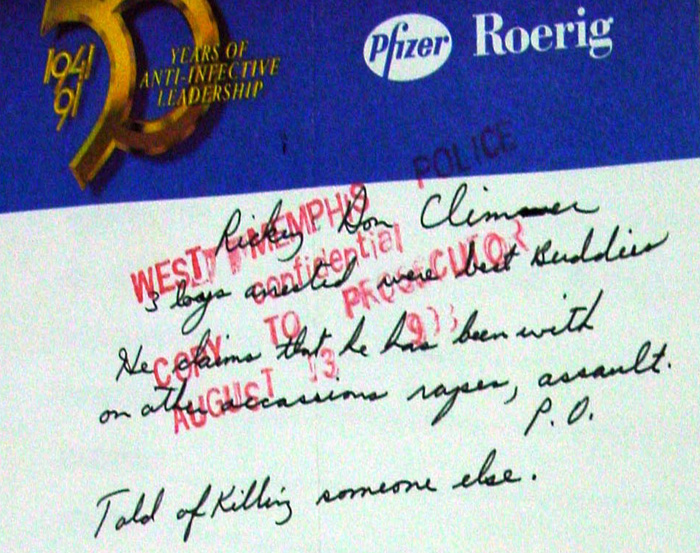 1941
91
50
YEARS OF
ANTI-INFECTIVE
LEADERSHIP
Pfizer Roerig
WEST MEMPHIS POLICE
Confidential
COPY TO PROSECUTOR
AUGUST 13 93
Ricky Don Climer
3 boys arrested were best Buddies
He claims that he has been with
on other occassions rapes, assault.
P.O.
Told of Killing someone else.